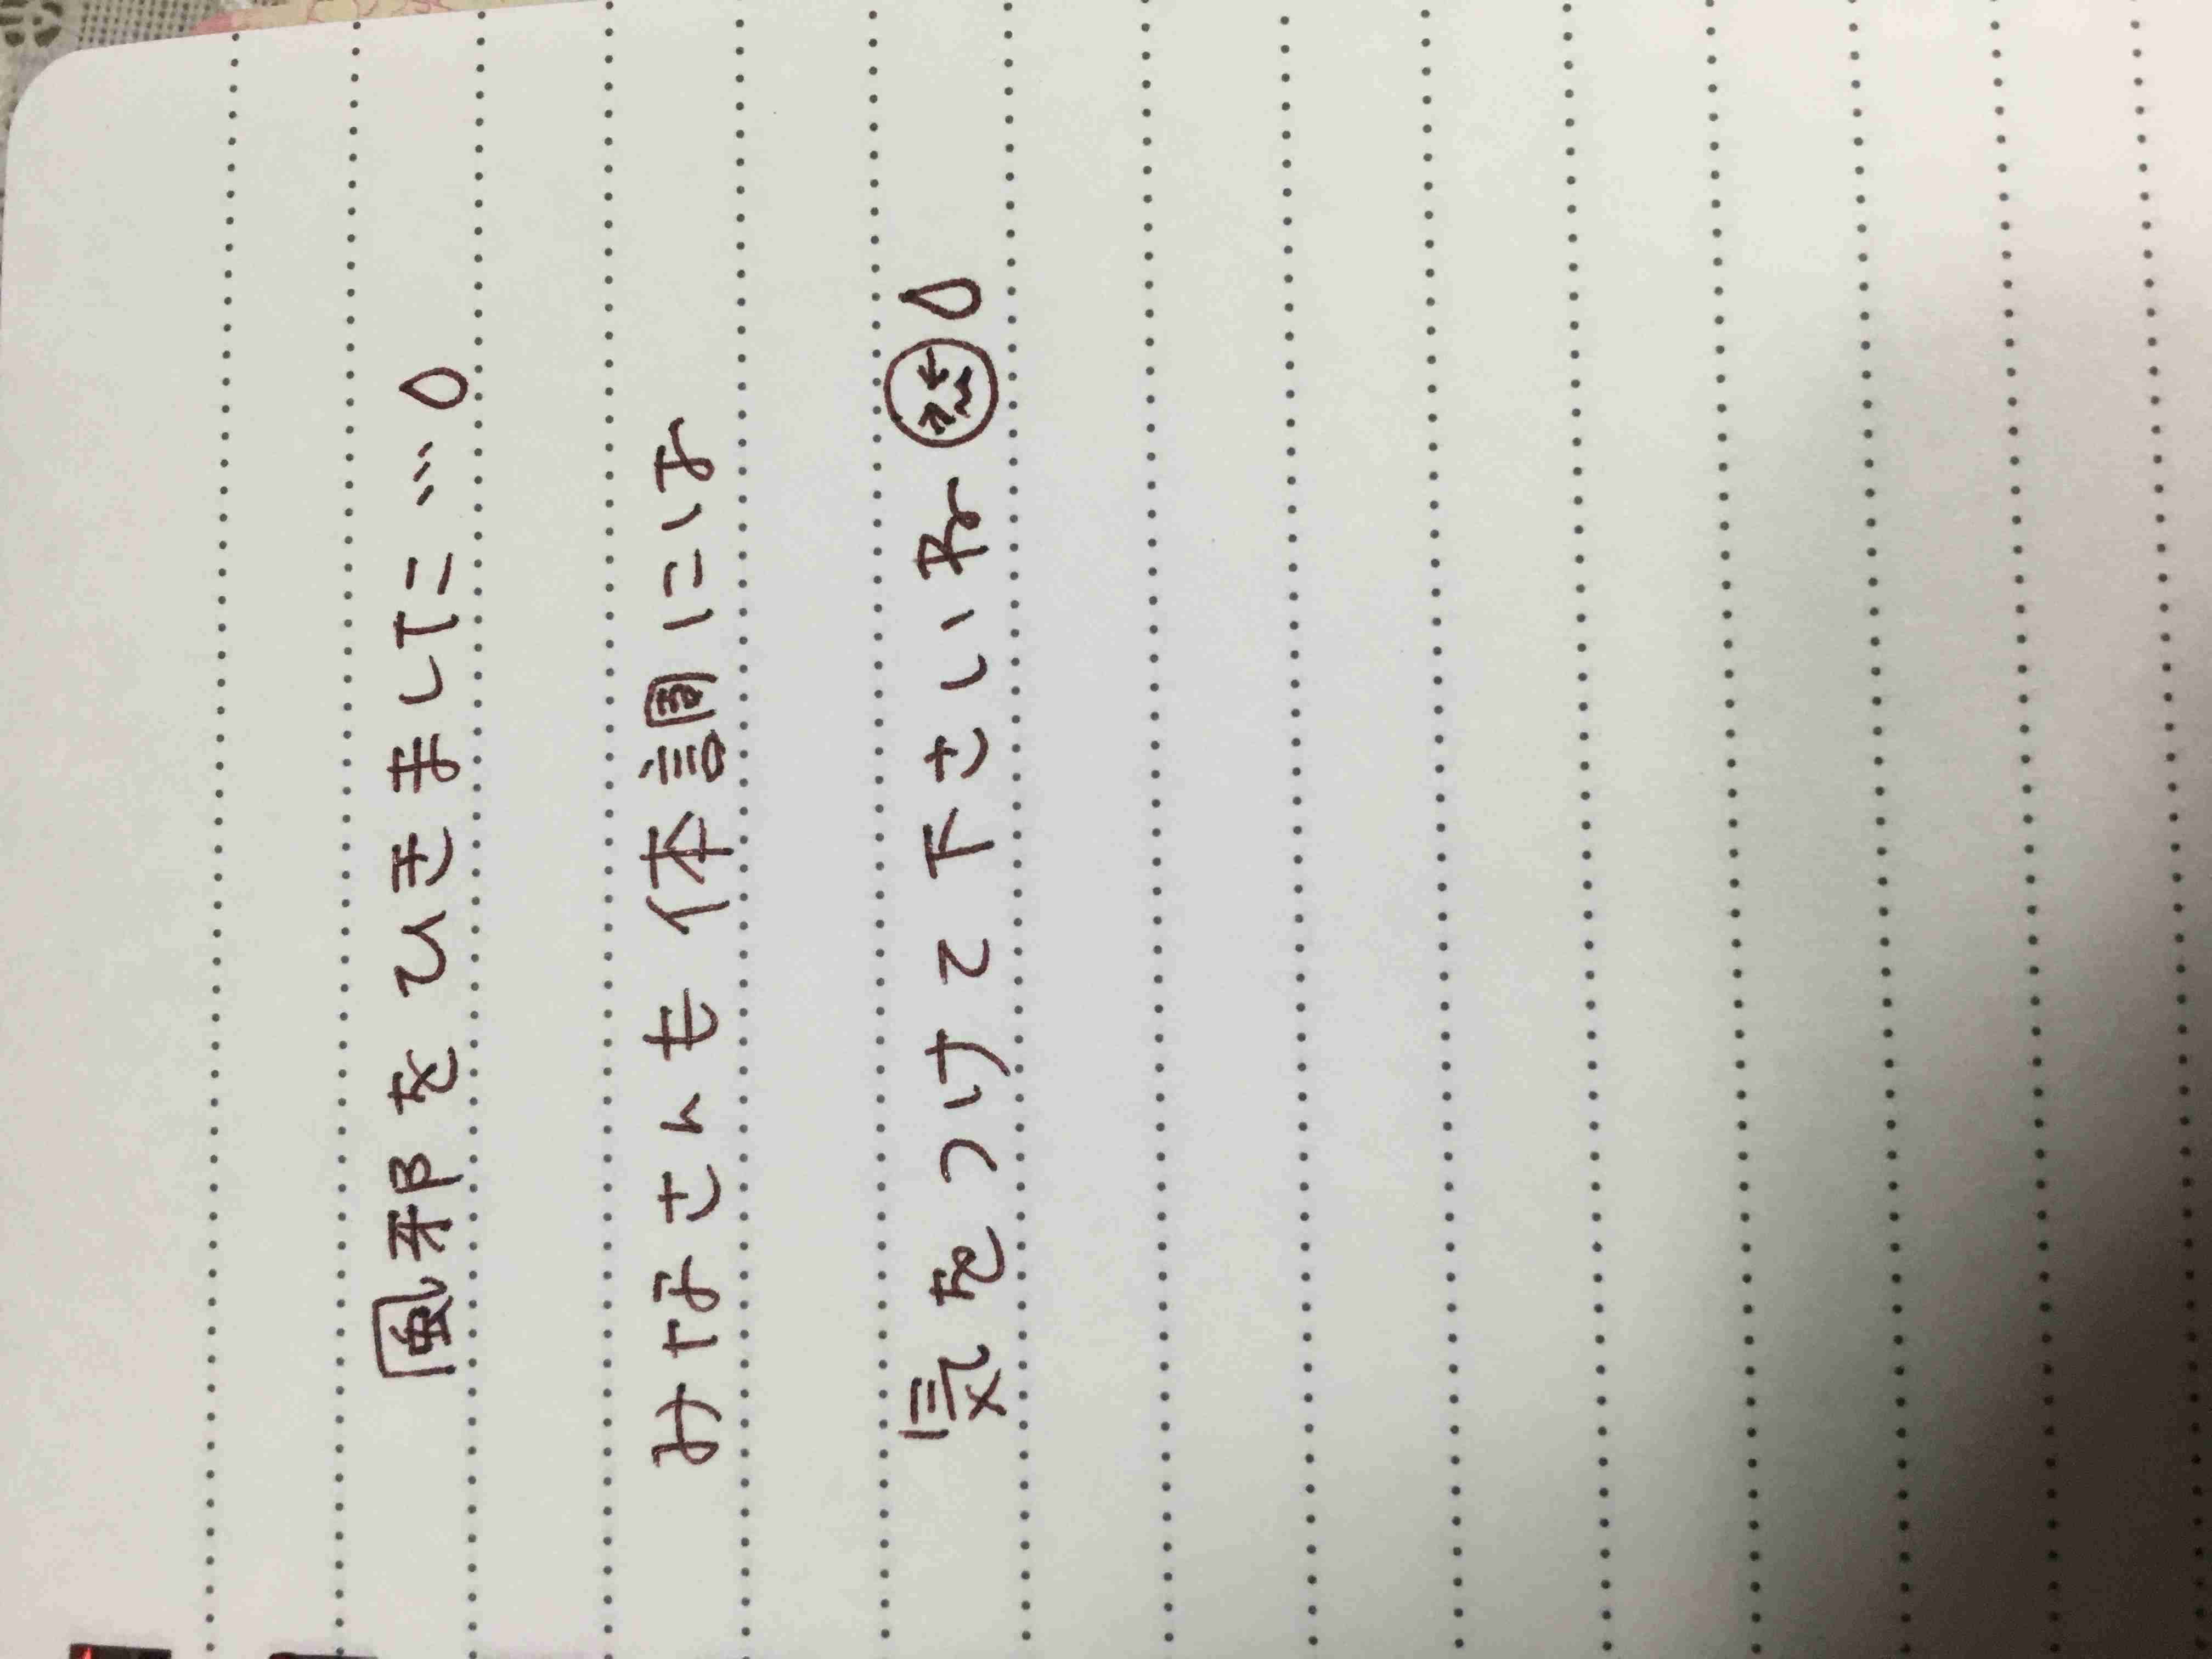 風邪をひきました…
みなさんも体調には
気をつけて下さいね